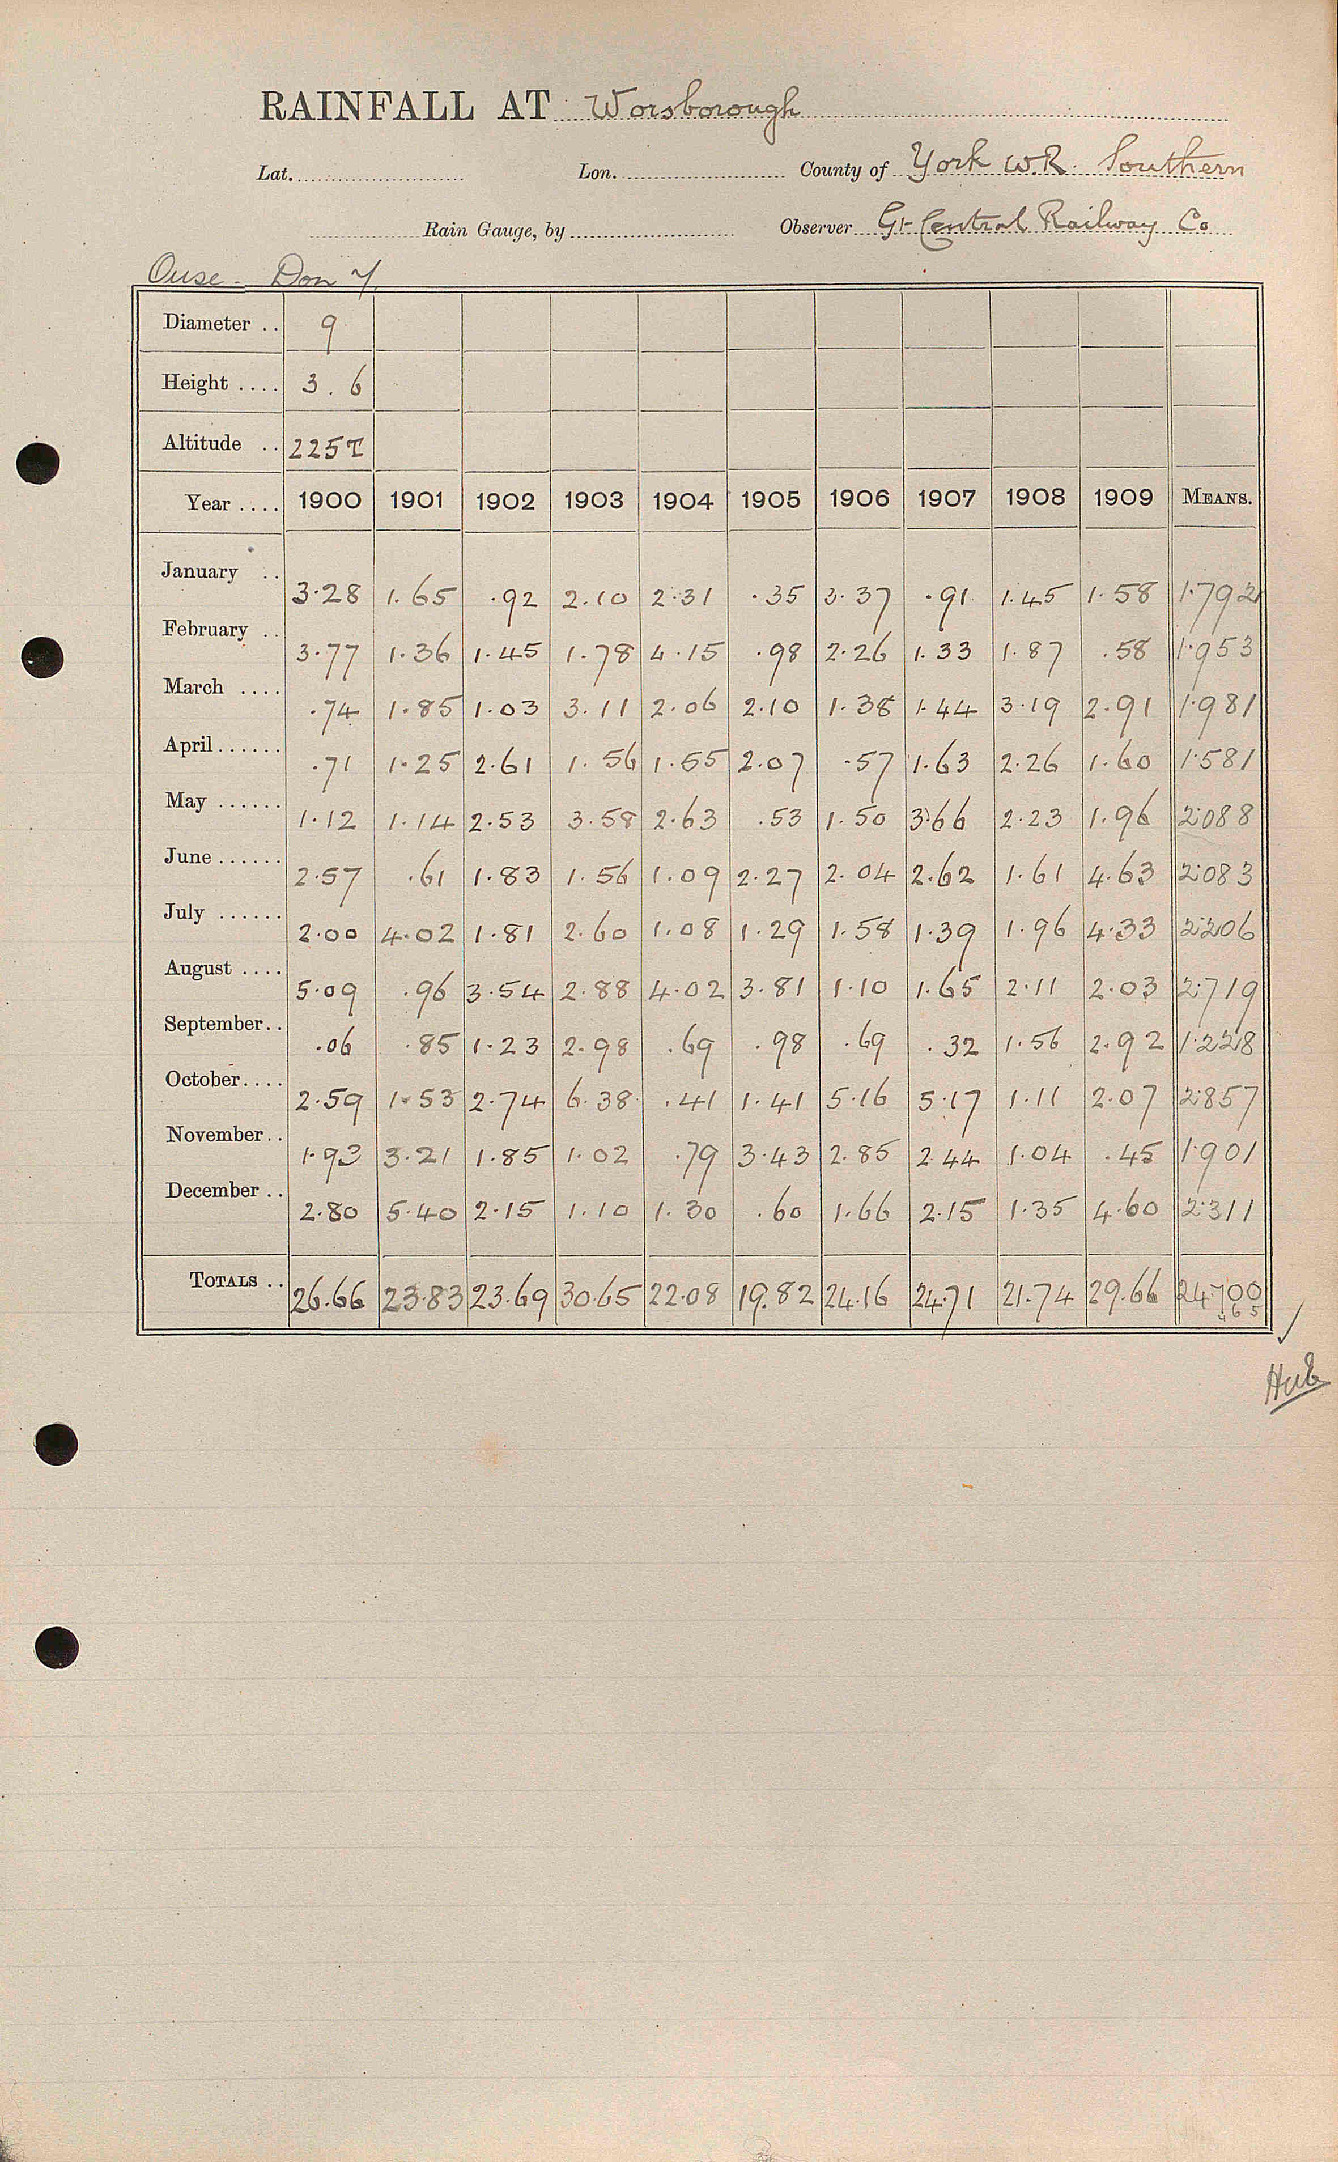 RAINFALL AT Worsborough
Lat. Lon. County of York W.R. Southern
Rain Gauge, by Observer Gt Central Railway Co
Ouse - Don 7
Diameter .. 9
Height .... 3.6
Altitude .. 225T
Year .... 1900 1901 1902 1903 1904 1905 1906 1907 1908 1909 MEANS.
January .. 3.28 1.65 .92 2.10 2.31 .35 3.37 .91 1.45 1.58 1.792
February .. 3.77 1.36 1.45 1.78 4.15 .98 2.26 1.33 1.87 .58 1.953
March .... .74 1.85 1.03 3.11 2.06 2.10 1.38 1.44 3.19 2.91 1.981
April ...... .71 1.25 2.61 1.56 1.55 2.07 .57 1.63 2.26 1.60 1.581
May ...... 1.12 1.14 2.53 3.58 2.63 .53 1.50 3.66 2.23 1.96 2.088
June ...... 2.57 .61 1.83 1.56 1.09 2.27 2.04 2.62 1.61 4.63 2.083
July ...... 2.00 4.02 1.81 2.60 1.08 1.29 1.58 1.39 1.96 4.33 2.206
August .... 5.09 .96 3.54 2.88 4.02 3.81 1.10 1.65 2.11 2.03 2.719
September .. .06 .85 1.23 2.98 .69 .98 .69 .32 1.56 2.92 1.228
October .... 2.59 1.53 2.74 6.38 .41 1.41 5.16 5.17 1.11 2.07 2.857
November .. 1.93 3.21 1.85 1.02 .79 3.43 2.85 2.44 1.04 .45 1.901
December .. 2.80 5.40 2.15 1.10 1.30 .60 1.66 2.15 1.35 4.60 2.311
TOTALS .. 26.66 23.83 23.69 30.65 22.08 19.82 24.16 24.71 21.74 29.66 24.700
465